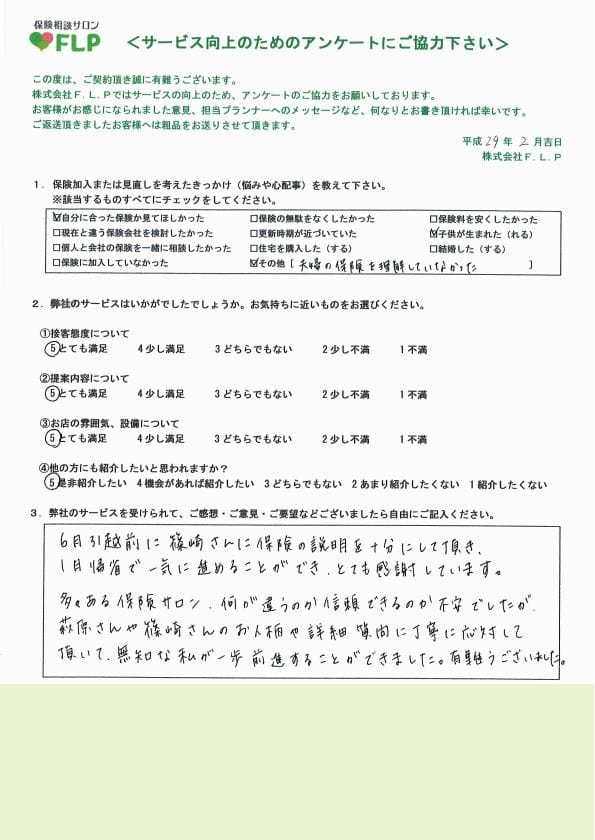 保険相談サロン
FLP
＜サービス向上のためのアンケートにご協力下さい＞
この度は、ご契約頂き誠に有難うございます。
株式会社F.L.Pではサービスの向上のため、アンケートのご協力をお願いしております。
お客様がお感じになられました意見、担当プランナーへのメッセージなど、何なりとお書き頂ければ幸いです。
ご返送頂きましたお客様へは粗品をお送りさせて頂きます。
平成 29 年 2 月吉日
株式会社F.L.P
1．保険加入または見直しを考えたきっかけ（悩みや心配事）を教えて下さい。
※該当するものすべてにチェックをしてください。
☑自分に合った保険か見てほしかった □保険の無駄をなくしたかった □保険料を安くしたかった
□現在と違う保険会社を検討したかった □更新時期が近づいていた ☑子供が生まれた（れる）
□個人と会社の保険を一緒に相談したかった □住宅を購入した（する） □結婚した（する）
□保険に加入していなかった ☑その他［夫婦の保険を理解していなかった］
2．弊社のサービスはいかがでしたでしょうか。お気持ちに近いものをお選びください。
①接客態度について
⑤とても満足 4少し満足 3どちらでもない 2少し不満 1不満
②提案内容について
⑤とても満足 4少し満足 3どちらでもない 2少し不満 1不満
③お店の雰囲気、設備について
⑤とても満足 4少し満足 3どちらでもない 2少し不満 1不満
④他の方にも紹介したいと思われますか？
⑤是非紹介したい 4機会があれば紹介したい 3どちらでもない 2あまり紹介したくない 1紹介したくない
3．弊社のサービスを受けられて、ご感想・ご意見・ご要望などございましたら自由にご記入ください。
6月引越前に篠崎さんに保険の説明を十分にして頂き、
1月帰省で一気に進めることができ、とても感謝しています。
多々ある保険サロン、何が違うのか信頼できるのか不安でしたが、
萩原さんや篠崎さんのお人柄や詳細質問に丁寧に応対して
頂いて、無知な私が一歩前進することができました。有難うございました。